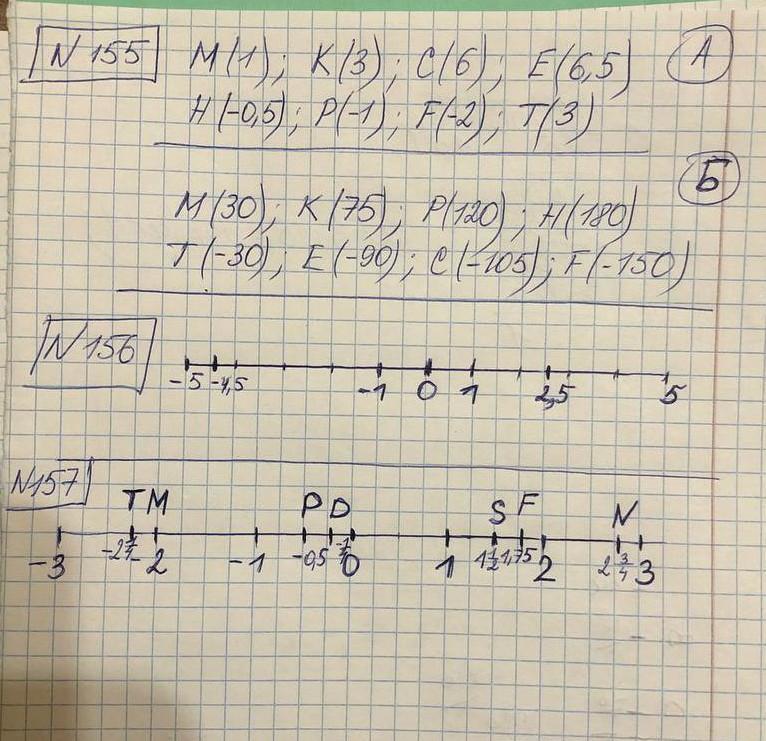 N 155 М(1); К(3); С(6); Е(6,5) А
Н(-0,5); Р(-1); F(-2); Т(3)
Б
М(30); К(75); Р(120); Н(180)
Т(-30); Е(-90); С(-105); F(-150)
N 156
-5 -4,5 -1 0 1 2,5 5
N157
T M P D S F N
-3 -2 -1 -0,5 0 1 1 1/2 1,75 2 2 3/4 3